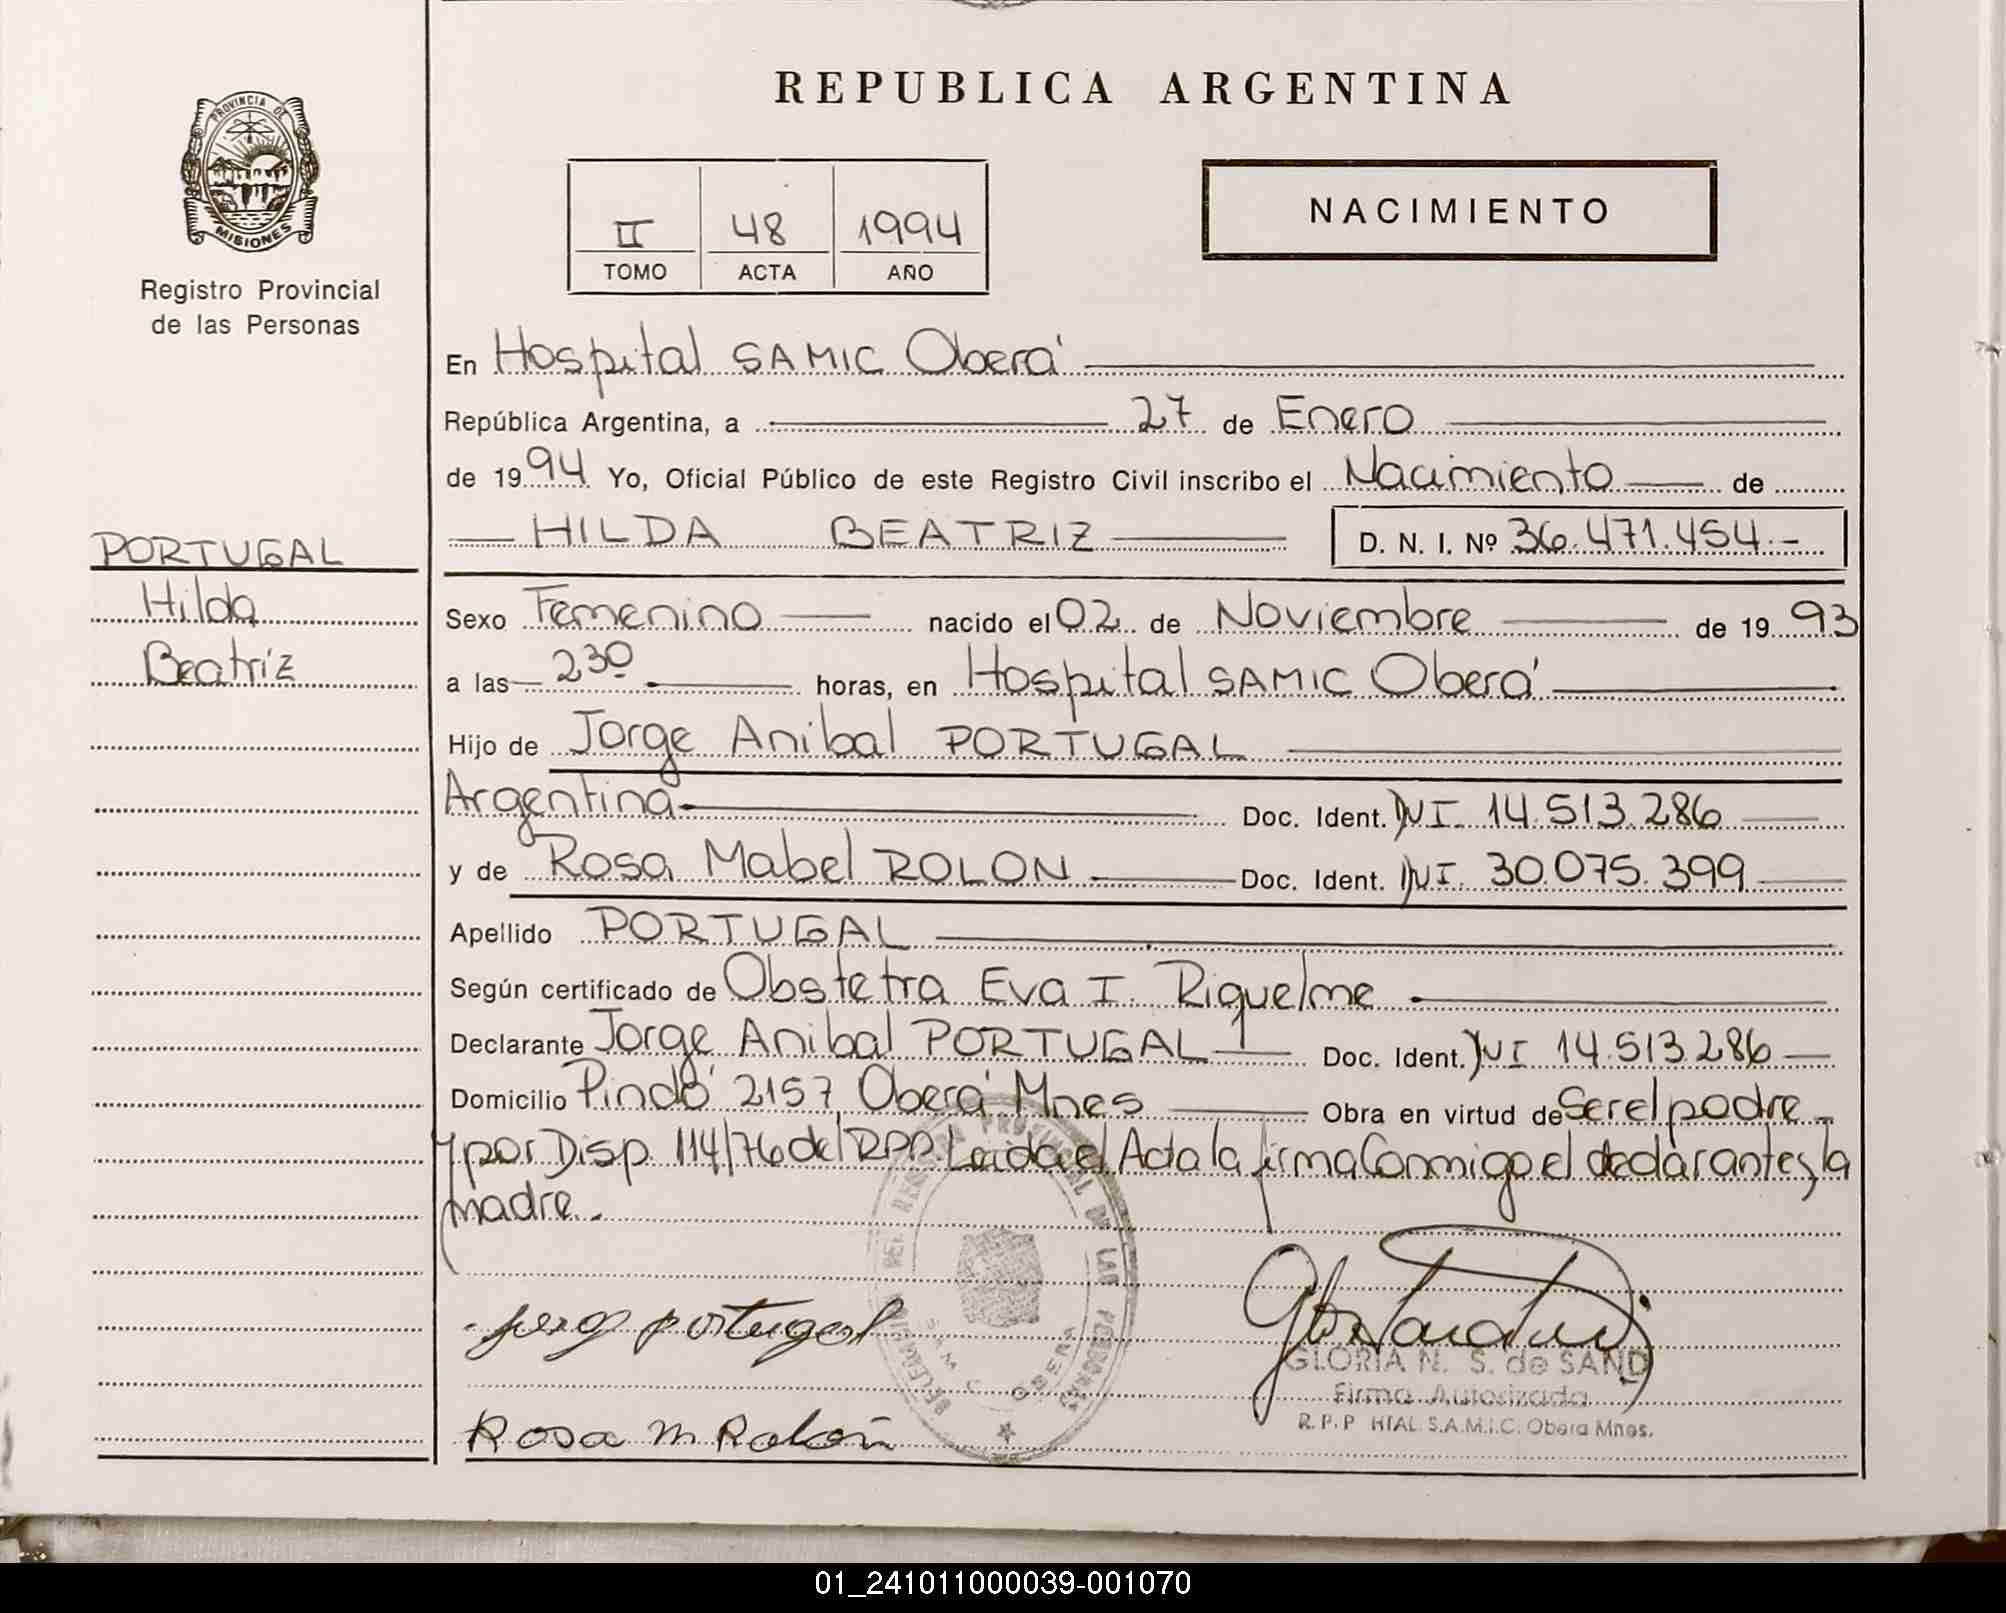 REPUBLICA ARGENTINA
PROVINCIA DE
MISIONES
Registro Provincial
de las Personas
II 48 1994
TOMO ACTA AÑO
NACIMIENTO
En Hospital SAMIC Oberá
República Argentina, a 27 de Enero
de 1994 Yo, Oficial Público de este Registro Civil inscribo el Nacimiento de
HILDA BEATRIZ D. N. I. Nº 36.471.454.-
PORTUGAL
Hilda
Beatriz
Sexo Femenino nacido el 02 de Noviembre de 1993
a las 2 30 horas, en Hospital SAMIC Oberá
Hijo de Jorge Anibal PORTUGAL
Argentina Doc. Ident. DNI. 14.513.286
y de Rosa Mabel ROLON Doc. Ident. DNI. 30.075.399
Apellido PORTUGAL
Según certificado de Obstetra Eva I. Riquelme
Declarante Jorge Anibal PORTUGAL Doc. Ident. DNI 14.513.286
Domicilio Pindó 2157 Oberá Mnes Obra en virtud de Ser el padre
y por Disp. 114/76 del RPP. Leida el Acta la firma Conmigo el declarante y la
madre.
portugal
Rosa M. Rolón
GLORIA N. S. de SAND
Firma Autorizada
R.P.P HIAL S.A.M.I.C. Obera Mnes.
01_241011000039-001070